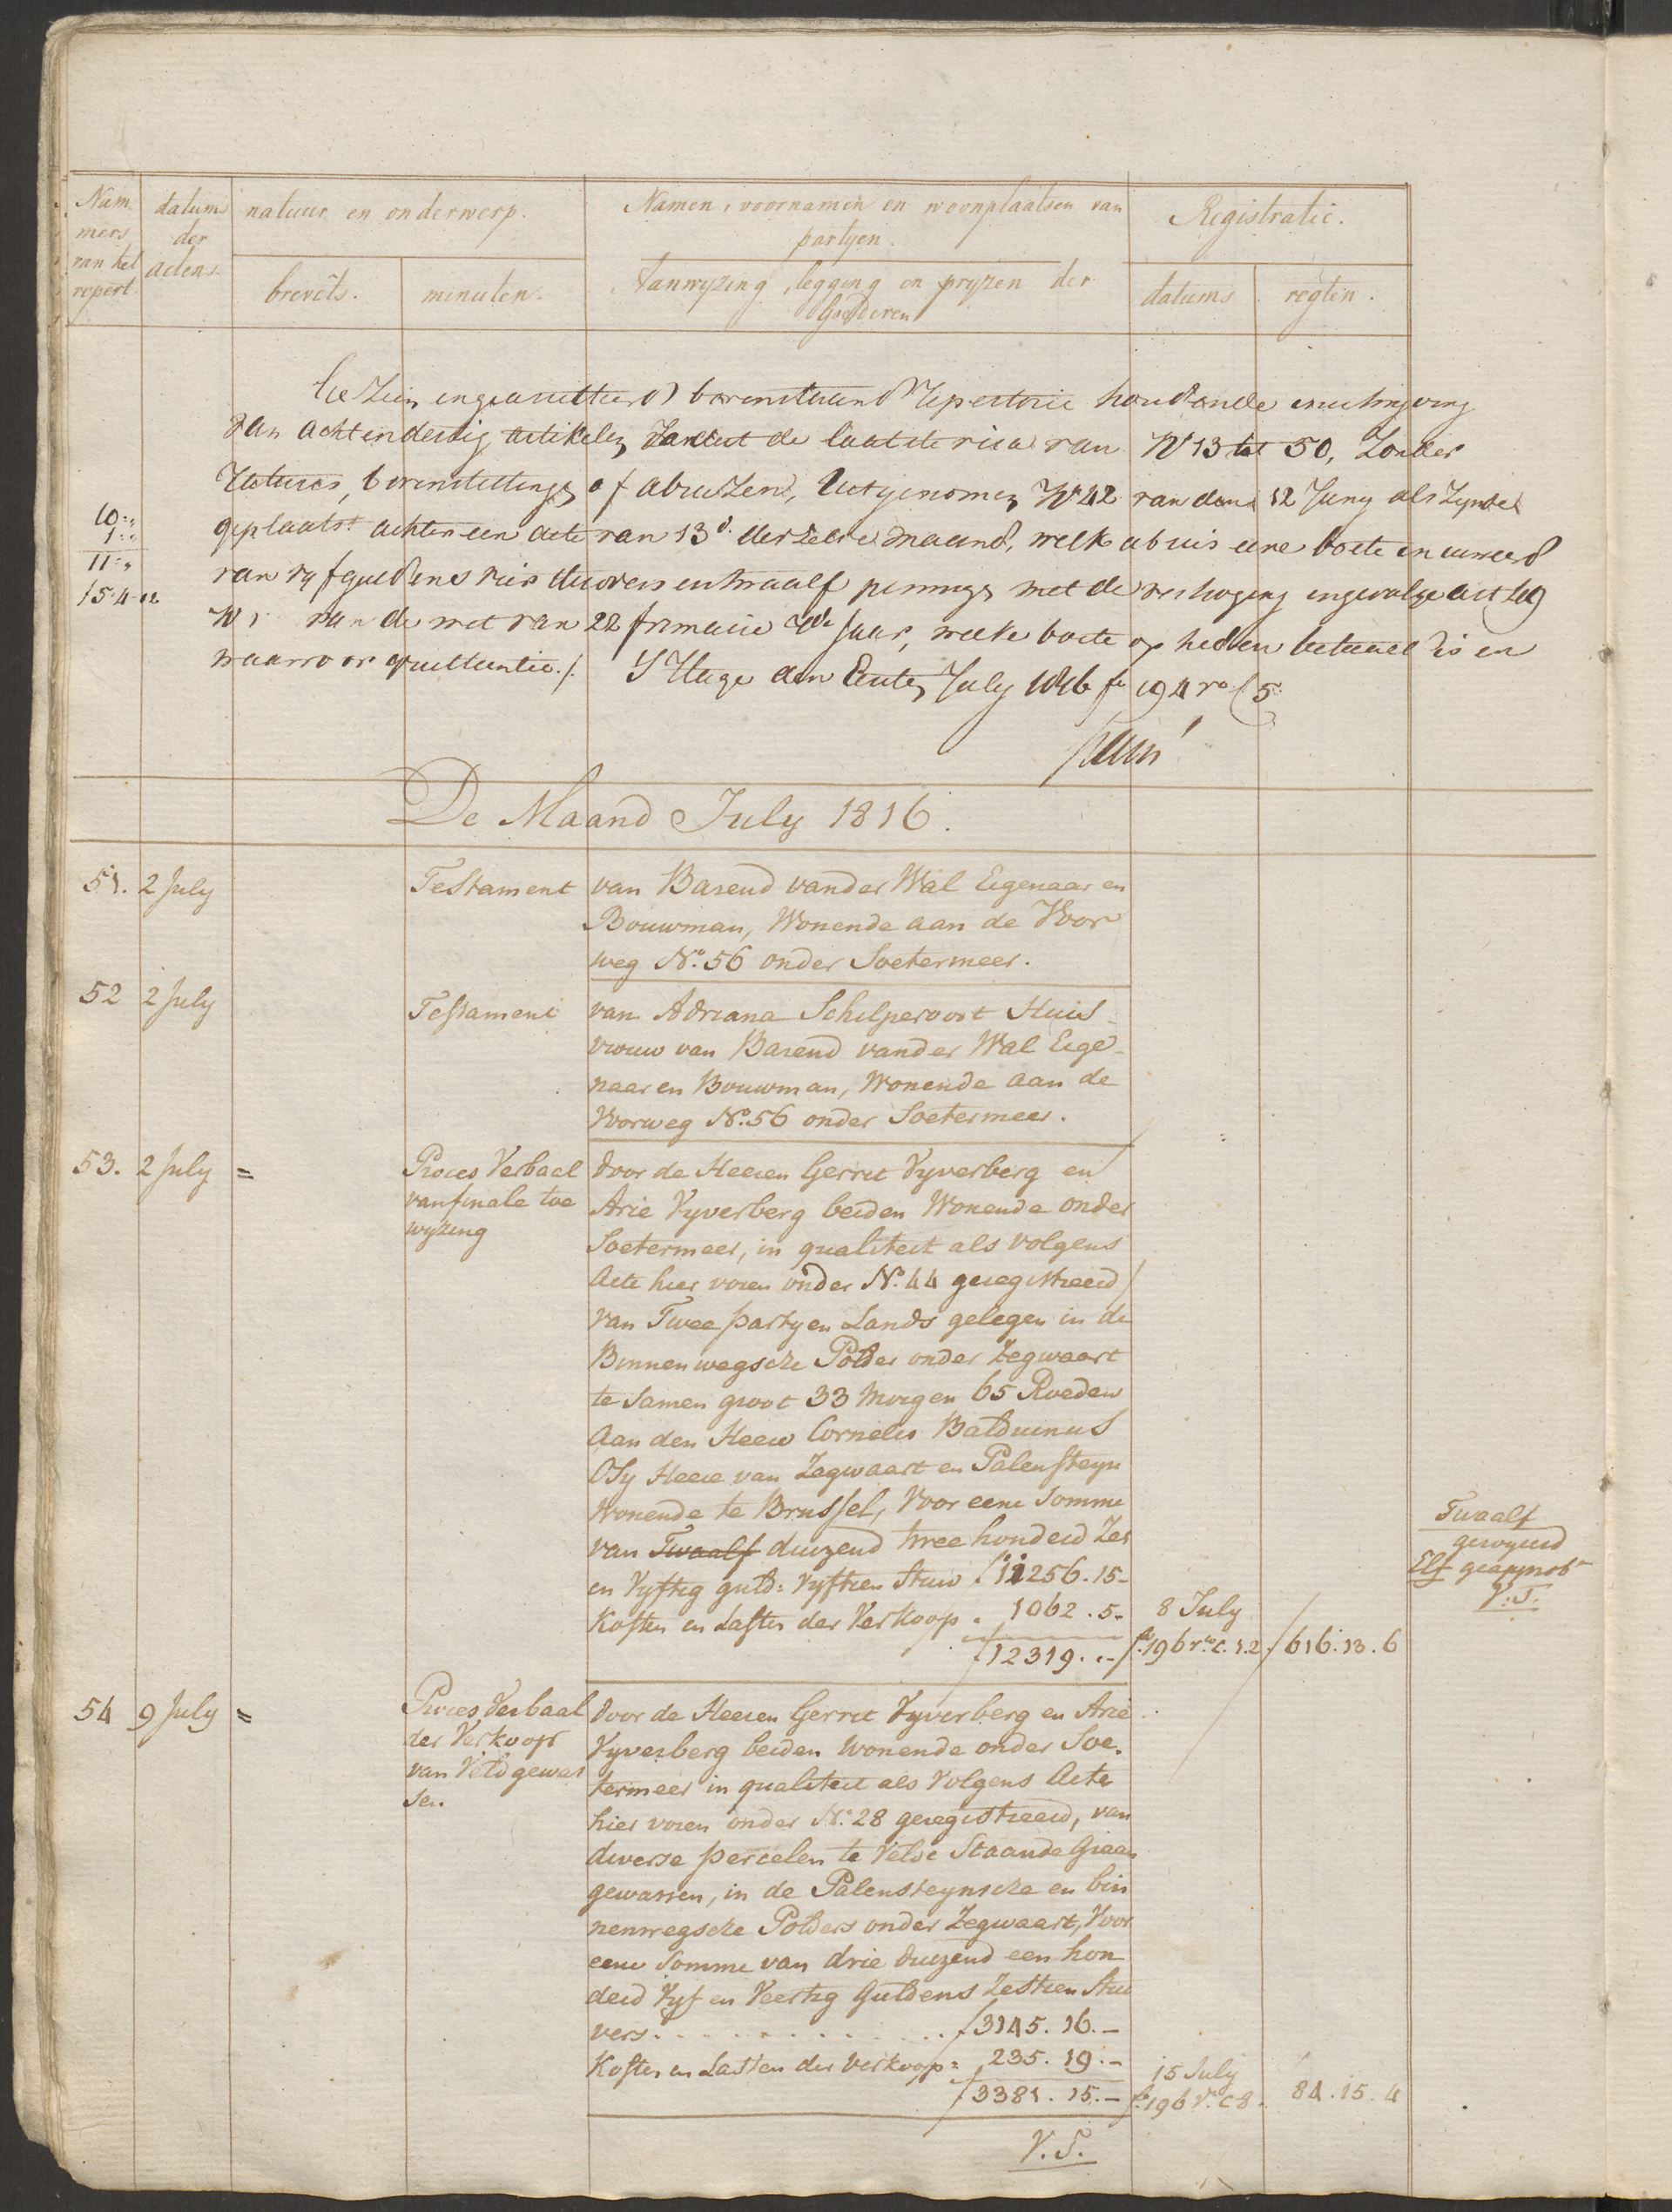 Nam
mers
van het
repert.
datums
der
actens.
natuur en onderwerp.
brevéts.
minuten.
Namen, voornamen en woonplaatsen van
partyen.
Aanwyzing, legging en pryzen der
Goederen
Registratie.
datums
regten.
Gezien engequitteerd bovenstaand Repertorie houdende inschryving
van achtendertig artikelen sedert de laatste visa van No 13 tot 50, zonder
of abuizen, uitgenomen No 42 van den 12 Juny als zynde
geplaatst achter een acte van 13d. derzelve maand, welk abuis eene boete
van vyf guldens vier stuivers en twaalf penningen met de verhoging ingevolge art 49
van de wet van 22 frimaire 7de Jaar, welke boete op heden betaald is en
waarvoor quittantie ./. S Hage den Eersten July 1816 fo 194 ro C 5.
10:„
1:„
11:„
15-4-12
De Maand July 1816.
51. 2 July
Testament
van Barend vander Wal Eigenaar en
Bouwman, Wonende aan de Voor
weg No. 56 onder Soetermeer.
52 2 July
Testament
van Adriana Schilperoort Huis-
vrouw van Barend vander Wal Eige-
naar en Bouwman, Wonende aan de
Voorweg No. 56 onder Soetermeer.
53. 2 July =
Proces Verbaal
van finale toe
wyzing
door de Heeren Gerrit Vyverberg en
Arie Vyverberg beiden Wonende onder
Soetermeer, in qualiteit als volgens
Acte hier voren onder No. 44 geregistreerd
van Twee partyen Lands gelegen in de
Binnenwegsche Polder onder Zegwaart
te samen groot 33 Morgen 65 Roeden
Aan den Heere Cornelis Balduinus
Osy Heere van Zegwaart en Palensteyn
Wonende te Brussel, Voor eene Somme
van Twaalf duizend twee honderd Zes
en Vyftig guld: Vyftien Stuiv f 11256.15-
Kosten en Lasten der Verkoop. 1062.5-
f 12319..-
8 July
fo. 196 ro. C. 1.2.
f 616.13.6
Twaalf
geroyeerd
Elf geapprob
V.S.
54 9 July =
Proces Verbaal
der Verkoop
van Veldgewas
sen.
door de Heeren Gerrit Vyverberg en Arie
Vyverberg beiden Wonende onder Soe-
termeer in qualiteit als Volgens Acte
hier voren onder No. 28 geregistreerd, van
diverse percelen te Velde Staande Graan
gewassen, in de Palensteynsche en bin
nenwegsche Polders onder Zegwaart, Voor
eene Somme van drie duizend een hon
derd Vyf en Veertig Guldens Zestien Stui
vers. . . . . . . . . . f 3145.16.-
Kosten en Lasten der Verkoop = 235.19.-
f 3381.15.-
15 July
fo. 196 Vo. C 8.
84.15.4
V.S.